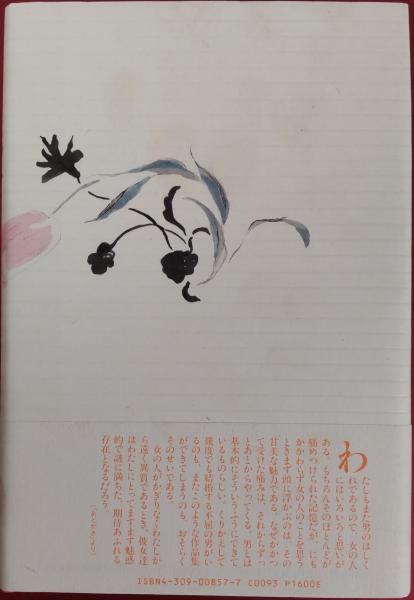 わたしもまた男のはしく
れであるので、女の人
にはいろいろと思いが
ある。もちろんそのほとんどが
痛めつけられた記憶だが、にも
かかわらず女の人のことを思う
ときまず頭に浮かぶのは、その
甘美な魅力である。なぜかかつ
て受けた痛みは、それからずっ
とあとからやってくる。男とは
基本的にそういうふうにできて
いるものらしい。くりかえして
幾度でも結婚する不屈の男がい
るのも、またこのような作品集
ができてしまうのも、おそらく
そのせいである。
女の人がかぎりなくわたしか
ら遠く異質であるとき、彼女達
はわたしにとってますます魅惑
的で謎に満ちた、期待あふれる
存在となるだろう。
(「あとがき」より)
ISBN4-309-00857-7 C0093 P1600E